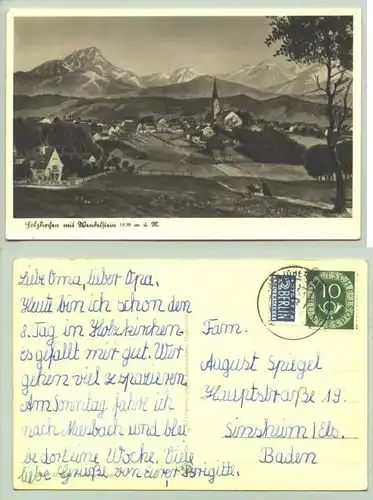 Holzkirchen mit Wendelstein 1838 m ü. M.
Liebe Oma, lieber Opa.
Heute bin ich schon den
8. Tag in Holzkirchen.
Es gefällt mir gut. Wir
gehen viel spazieren.
Am Sonntag fahre ich
nach Miesbach und blei-
be dort eine Woche. Viele
liebe Grüße von Eurer Brigitte.
2 BERLIN
10
Fam.
August Spiegel
Hauptstraße 19.
Sinsheim/Els.
Baden